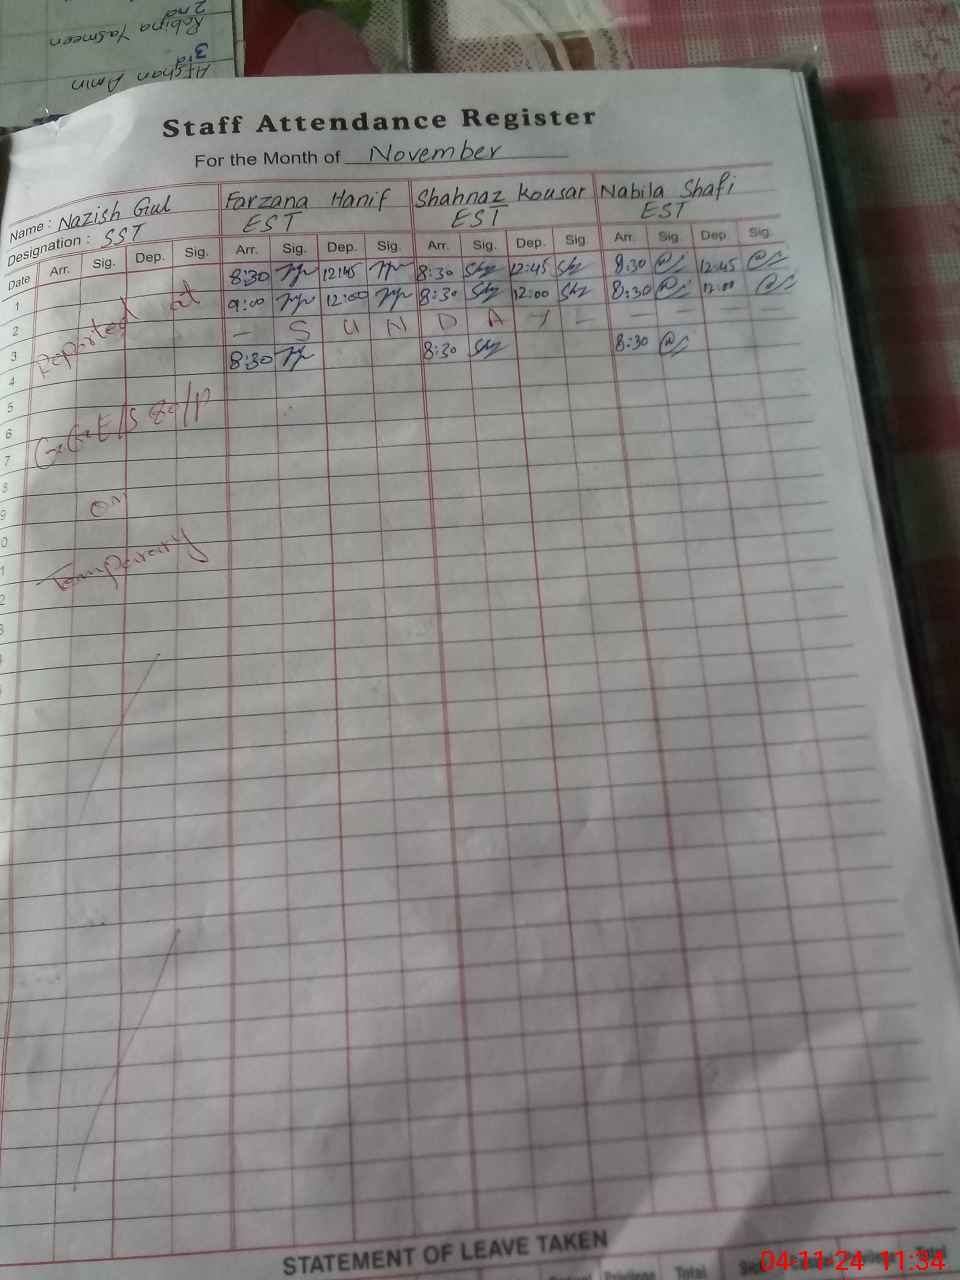 Afshan Amin
3rd
Robina Yasmeen
2nd
Staff Attendance Register
For the Month of November
Name : Nazish Gul Farzana Hanif Shahnaz Kousar Nabila Shafi
Designation : SST EST EST EST
Date Arr. Sig. Dep. Sig. Arr. Sig. Dep. Sig. Arr. Sig. Dep. Sig. Arr. Sig. Dep. Sig.
1 8:30 12:45 8:30 Shz 12:45 Shz 8:30 12:45
2 9:00 12:00 8:30 Shz 12:00 Shz 8:30 12:00
3 — S U N D A Y — — — — —
4 8:30 8:30 Shz 8:30
Reported at
5
6
7
8
9
on
0
1
Temporary
2
3
STATEMENT OF LEAVE TAKEN
Total Total
04-11-24 11:34